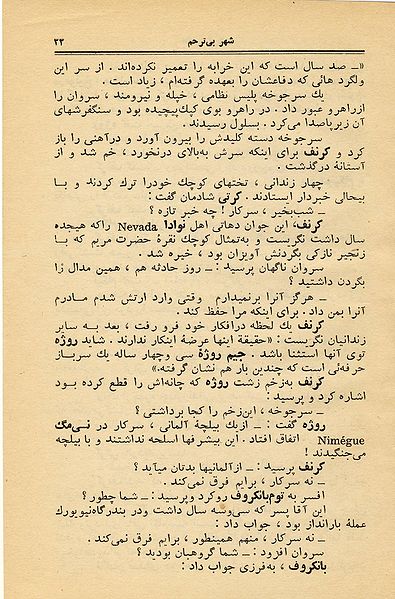 شهر بی‌ترحم ۲۳
«ـ صد سال است که این خرابه را تعمیر نکرده‌اند . از سر این
ولگرد هائی که دفاعشان را بعهده گرفته‌ام ، زیاد است .
یك سرجوخه پلیس نظامی ، خپله و نیرومند ، سروان را
ازراهرو عبور داد . در راهرو بوی کپك‌پیچیده بود و سنگفرشهای
آن زیرپاصدا می‌کرد . بسلول رسیدند .
سرجوخه دسته کلیدش را بیرون آورد و درآهنی را باز
کرد و کرنف برای اینکه سرش به‌بالای درنخورد ، خم شد و از
آستانهٔ درگذشت .
چهار زندانی ، تختهای کوچك خودرا ترك کردند و بـا
بیحالی خبردار ایستادند . کرتی شادمان گفت :
ـ شب‌بخیر ، سرکار ! چه خبر تازه ؟
کرنف، این جوان دهاتی اهل نوادا Nevada راکه هیجده
سال داشت نگریست و به‌تمثال کوچك نقرهٔ حضرت مریم که بـا
زنجیر نازکی بگردنش آویزان بود ، خیره شد .
سروان ناگهان پرسید : ـ روز حادثه هم ، همین مدال ژا
بگردن داشتید ؟
ـ هرگز آنرا برنمیدارم وقتی وارد ارتش شدم مـادرم
آنرا بمن داد . برای اینکه مرا حفظ کند .
کرنف یك لحظه درافکار خود فرو رفت ، بعد بـه سایر
زندانیان نگریست : «حقیقة اینها عرضهٔ اینکار ندارند . شاید روژه
توی آنها استثنا باشد . جیم روژهٔ سی وچهار ساله یك سربـاز
حرفه‌ئی است که چندین بار هم نشان گرفته.»
کرنف به‌زخم زشت روژه که چانه‌اش را قطع کرده بـود
اشاره کرد و پرسید :
ـ سرجوخه ، این‌زخم را کجا برداشتی ؟
روژه گفت : ـ ازیك بیلچهٔ آلمانی ، سرکار در نـی‌مگ
Nimégue اتفاق افتاد . این بیشرفها اسلحه نداشتند و با بیلچه
می‌جنگیدند !
کرنف پرسید : ـ ازآلمانیها بدتان میآید ؟
ـ نه سرکار ، برایم فرق نمی‌کند .
افسر به توم‌بانکروف روکرد وپرسید : ـ شما چطور ؟
این آقا پسر که سی‌وسه سال داشت ودر بندرگاه‌نیویورك
عملهٔ بارانداز بود ، جواب داد :
ـ نه سرکار ، منهم همینطور ، برایم فرق نمی‌کند .
سروان افزود : ـ شما گروهبان بودید ؟
بانکروف ، به‌فرزی جواب داد :